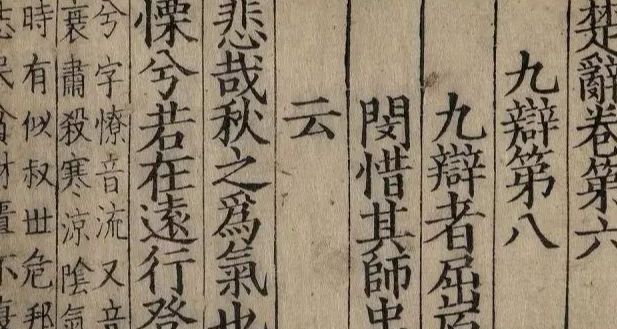 楚辭卷第六
九辯第八
九辯者屈原
閔惜其師忠
云
悲哉秋之爲氣也
慄兮若在遠行登
兮字憭音流又音
衰肅殺寒涼陰氣
時有似叔世危邦